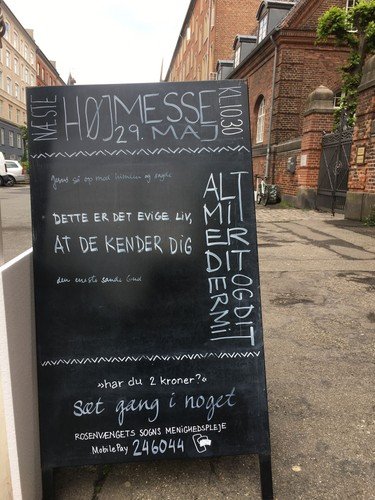 NÆSTE
HØJMESSE
29. MAJ
KL 10.30
Jesus så op mod himlen og sagde
DETTE ER DET EVIGE LIV,
AT DE KENDER DIG
den eneste sande Gud
ALT MIT ER DIT OG DIT ER MIT
»har du 2 kroner?«
sæt gang i noget
ROSENVÆNGETS SOGNS MENIGHEDSPLEJE
MobilePay 246044